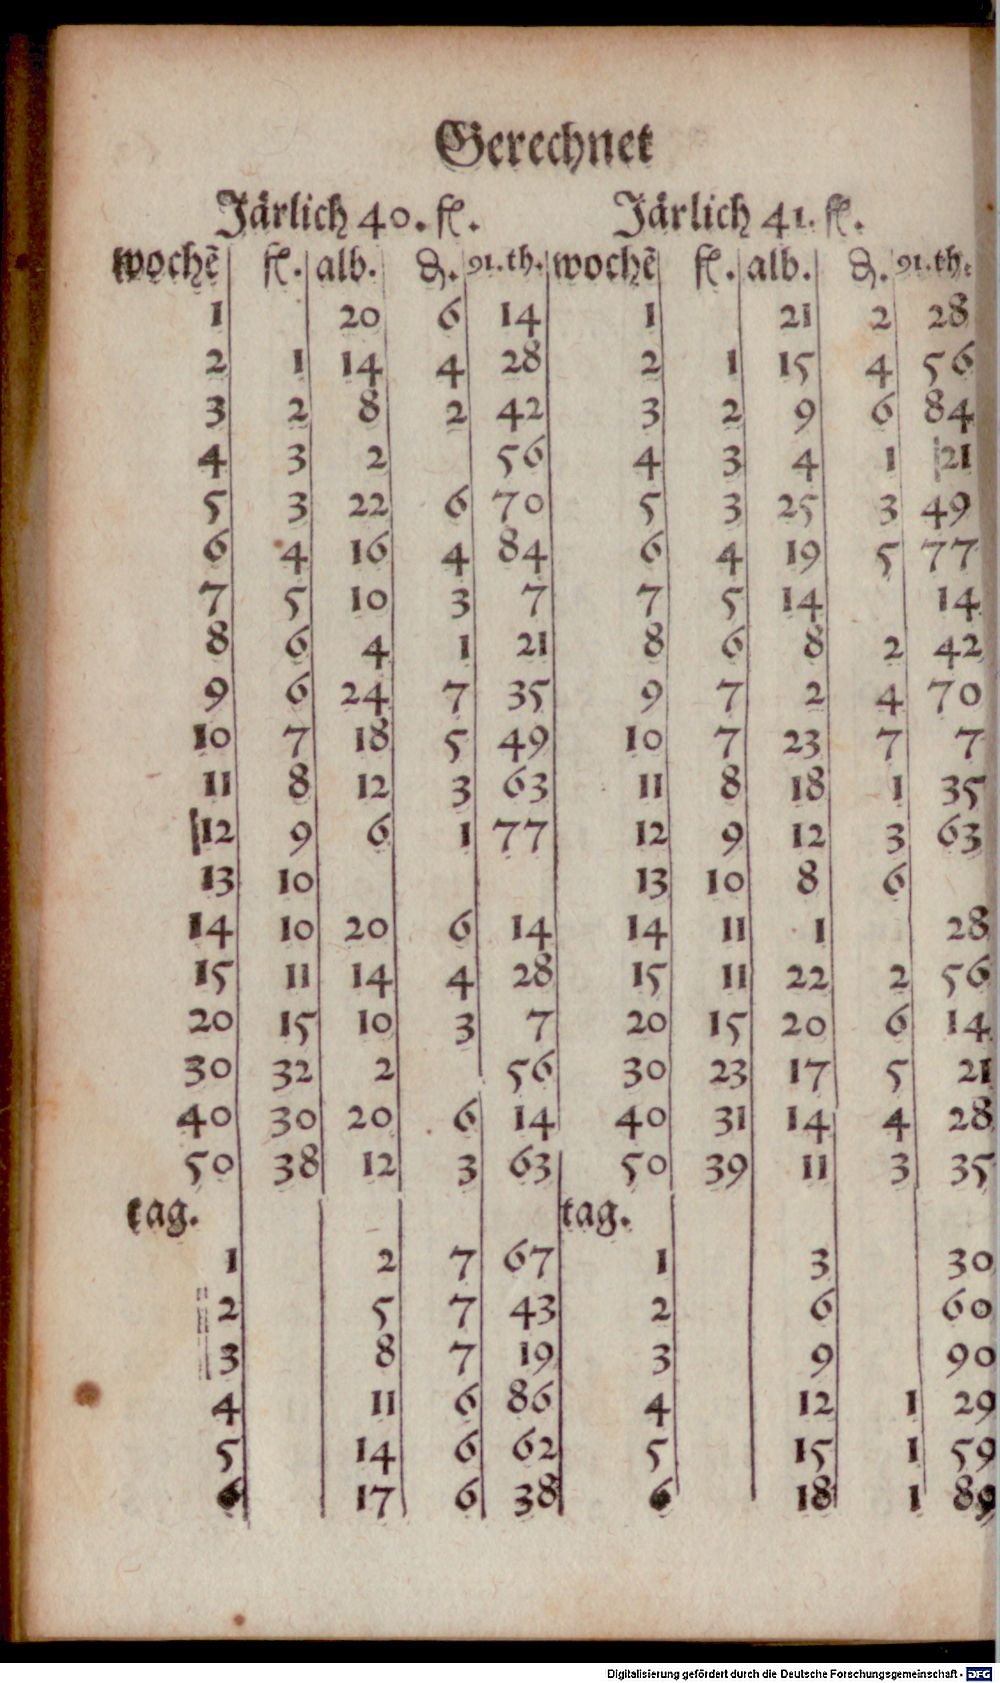 Gerechnet
Järlich 40. fl. Järlich 41. fl.
wochē fl. alb. ₰. 91.th. wochē fl. alb. ₰. 91.th.
1 20 6 14 1 21 2 28
2 1 14 4 28 2 1 15 4 56
3 2 8 2 42 3 2 9 6 84
4 3 2 56 4 3 4 1 21
5 3 22 6 70 5 3 25 3 49
6 4 16 4 84 6 4 19 5 77
7 5 10 3 7 7 5 14 14
8 6 4 1 21 8 6 8 2 42
9 6 24 7 35 9 7 2 4 70
10 7 18 5 49 10 7 23 7 7
11 8 12 3 63 11 8 18 1 35
12 9 6 1 77 12 9 12 3 63
13 10 13 10 8 6
14 10 20 6 14 14 11 1 28
15 11 14 4 28 15 11 22 2 56
20 15 10 3 7 20 15 20 6 14
30 32 2 56 30 23 17 5 21
40 30 20 6 14 40 31 14 4 28
50 38 12 3 63 50 39 11 3 35
tag. tag.
1 2 7 67 1 3 30
2 5 7 43 2 6 60
3 8 7 19 3 9 90
4 11 6 86 4 12 1 29
5 14 6 62 5 15 1 59
6 17 6 38 6 18 1 89
Digitalisierung gefördert durch die Deutsche Forschungsgemeinschaft - DFG